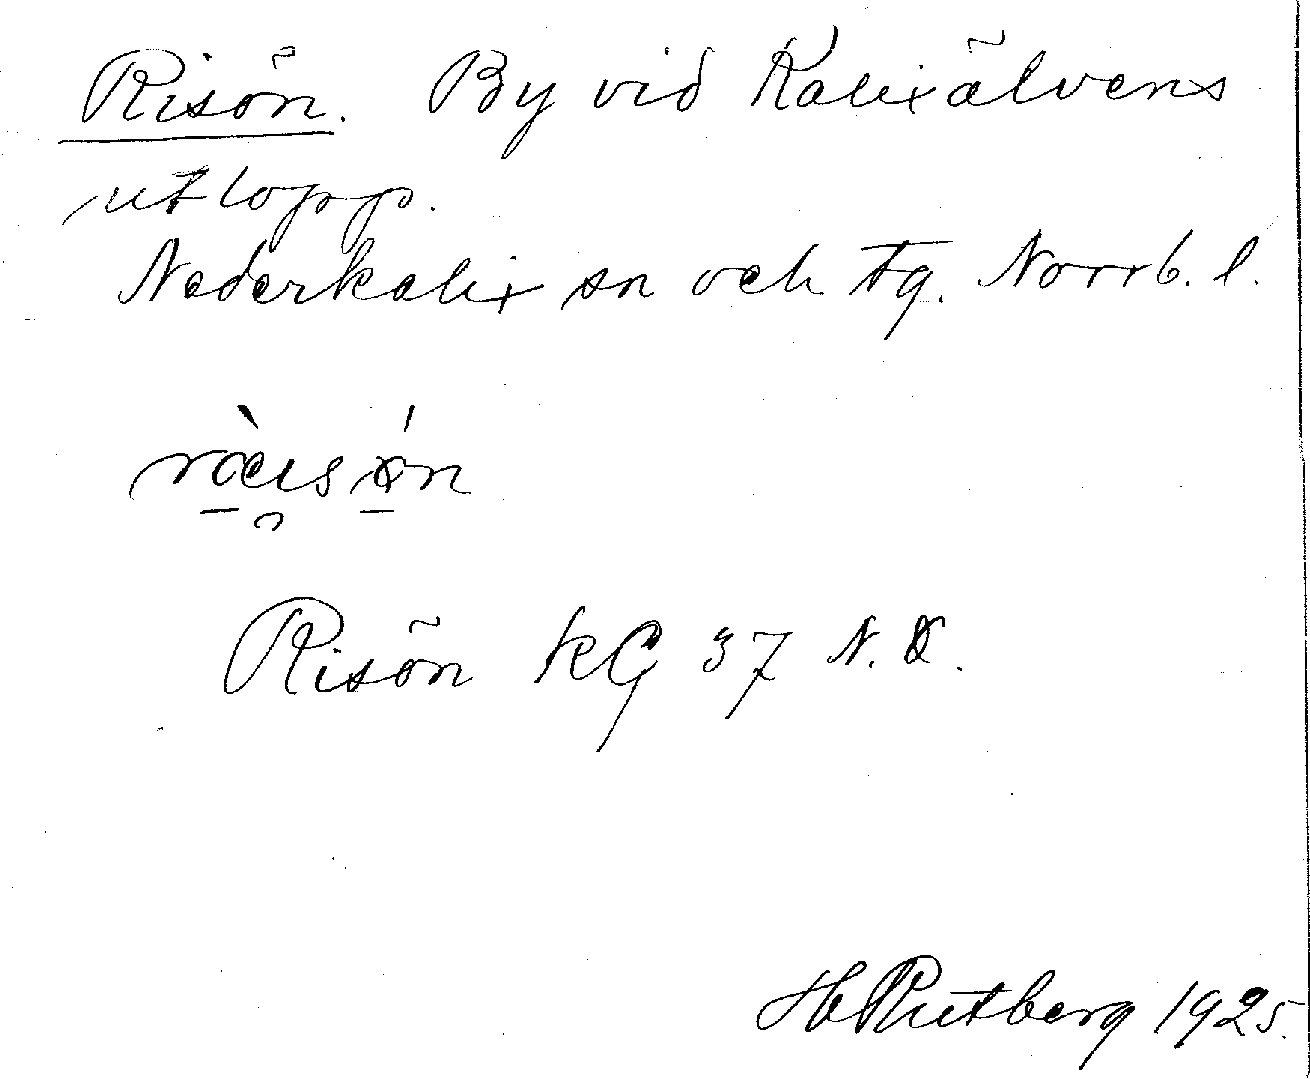 Risön. By vid Kalixälvens
utlopp.
Nederkalix sn och tg. Norrb. l.
Risön KG 37 N.
H Rutberg 1925.